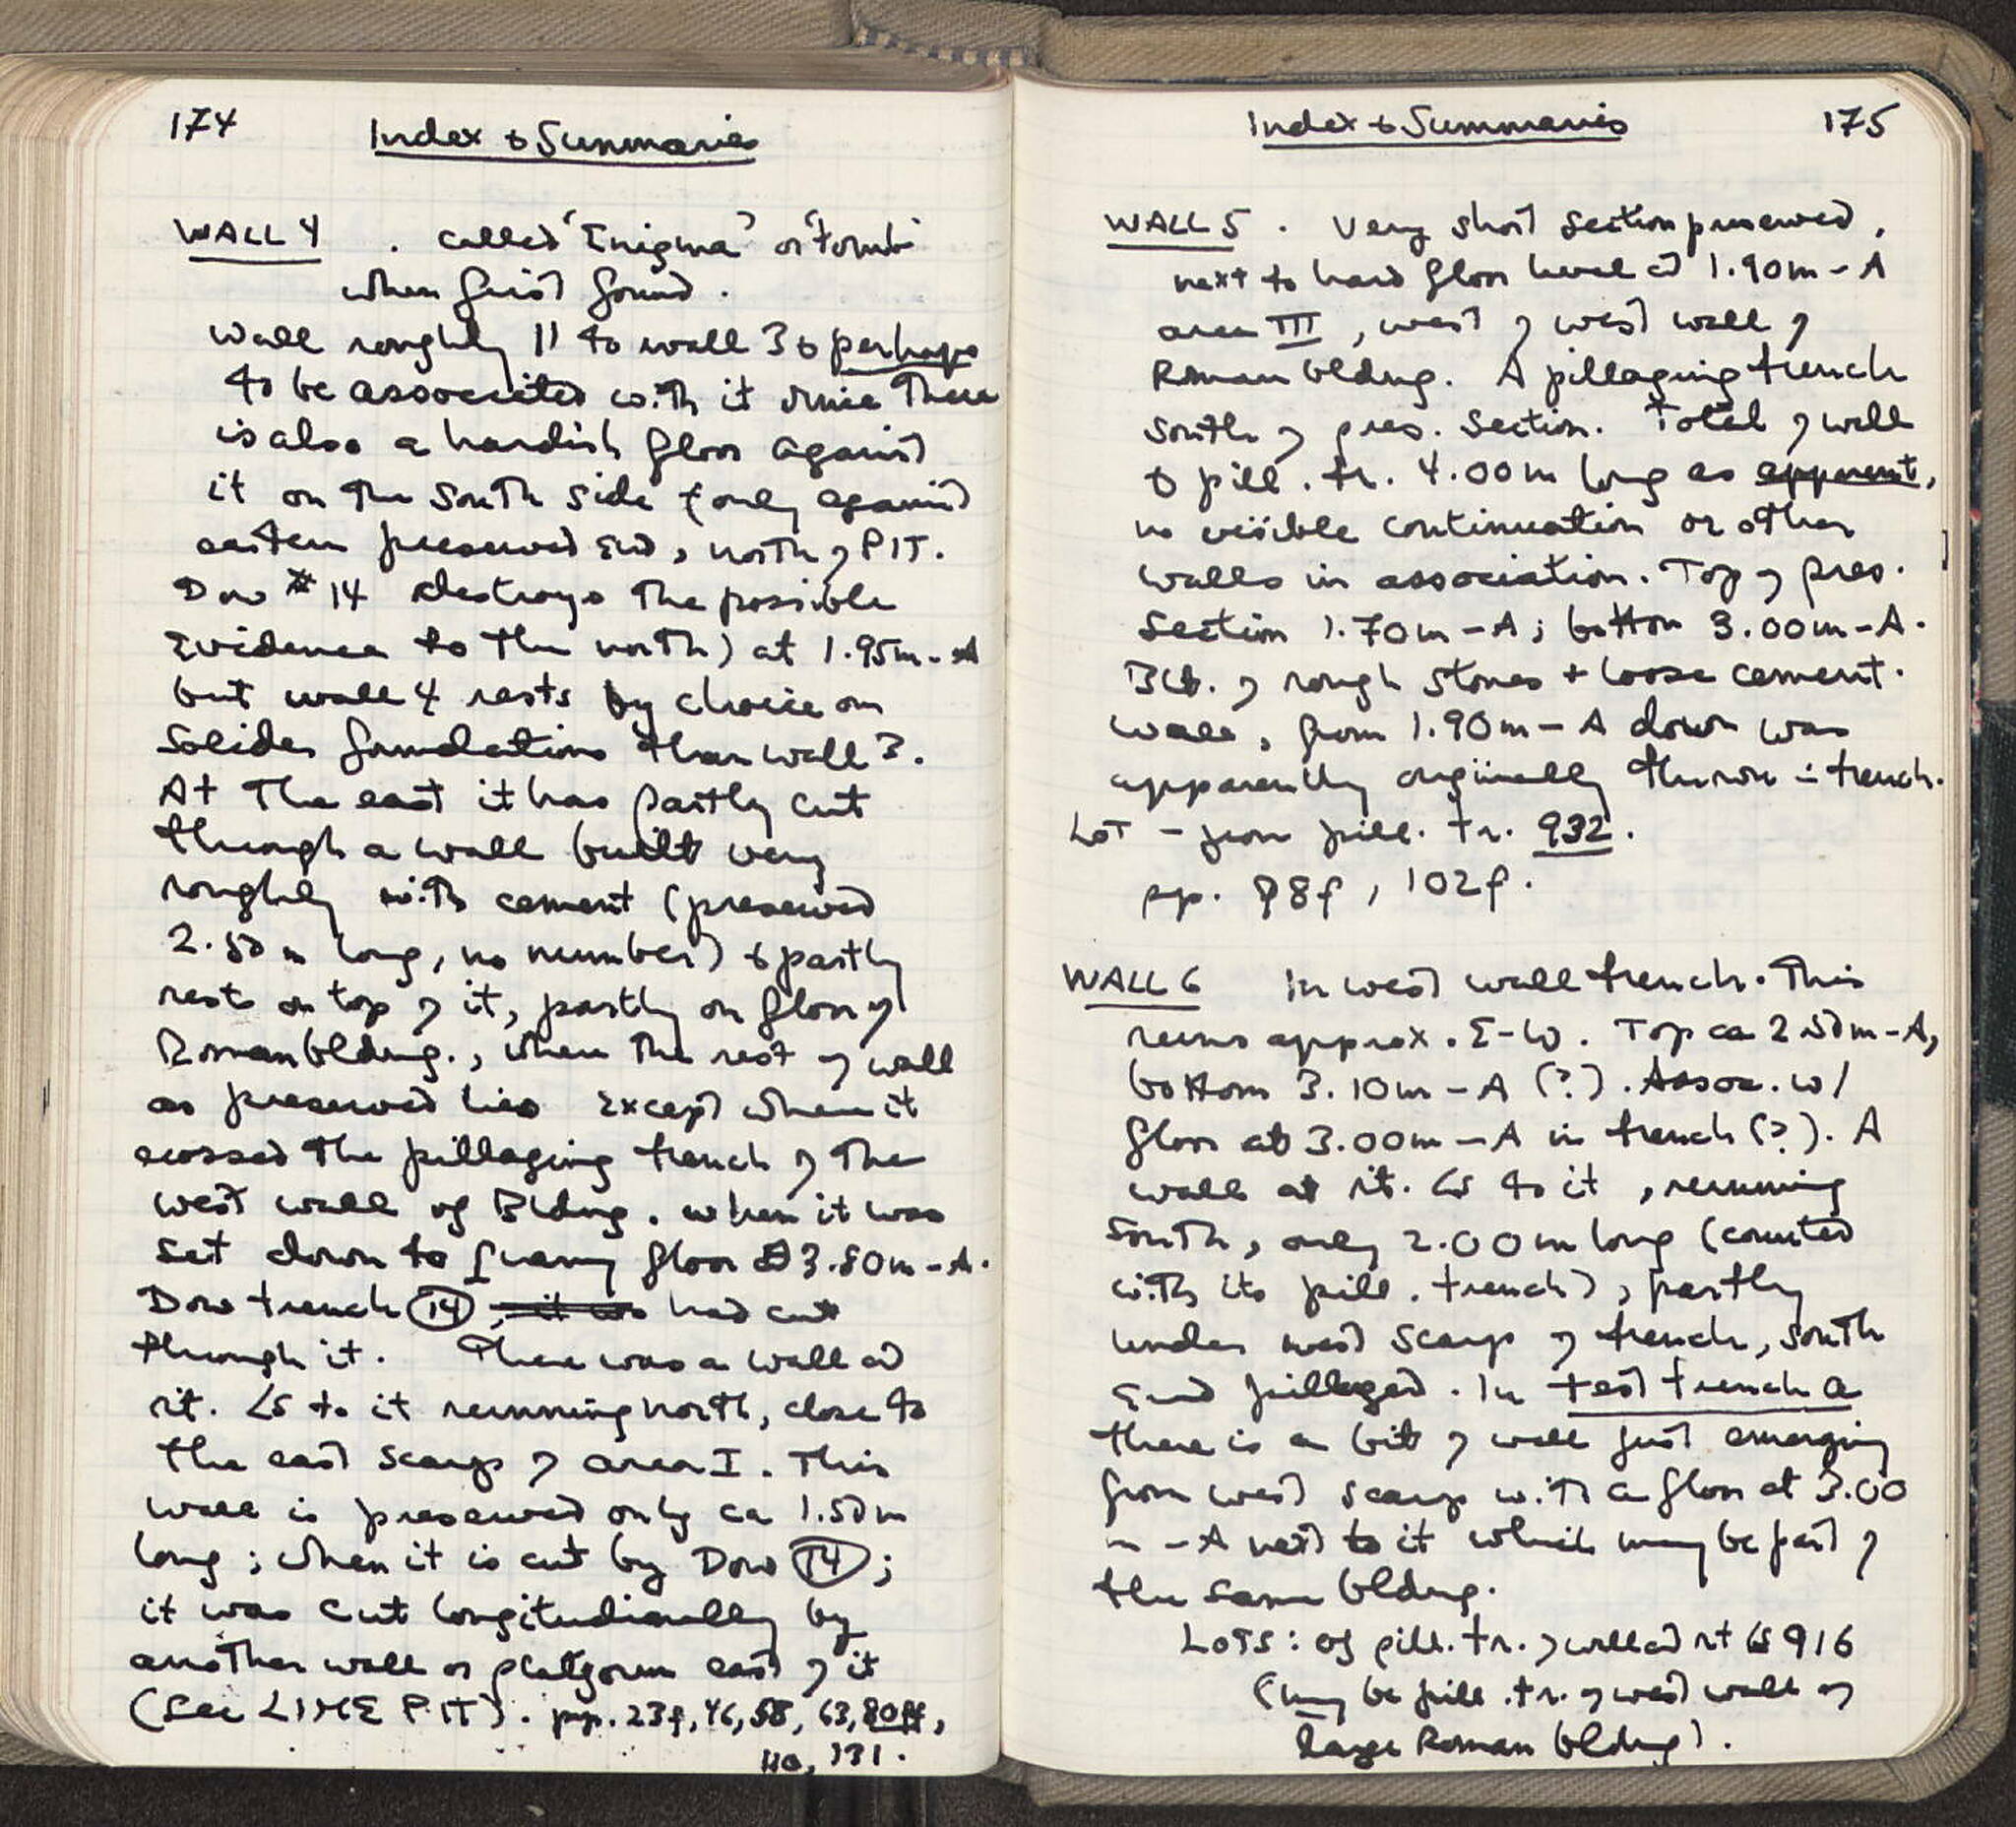 174
Index & Summaries
WALL 4 . called 'Enigma' or 'Tomb'
when first found.
Wall roughly || to wall 3 & perhaps
to be associated with it since there
is also a hardish floor against
it on the south side (only against
eastern preserved end, north of PIT.
Dow #14 destroys the possible
evidence to the north) at 1.95m-A
but wall 4 rests by choice on
solider foundations than wall 3.
At the east it has partly cut
through a wall built very
roughly with cement (preserved
2.50 m long, no number) & partly
rests on top of it, partly on floor of
Roman bldng., where the rest of wall
as preserved lies except where it
crossed the pillaging trench of the
west wall of Bldng. when it was
set down to floor at 3.80m-A.
Dow trench (14), it was had cut
through it. There was a wall at
rt. Ls to it running north, close to
the east scarp of area I. This
wall is preserved only ca 1.50m
long; when it is cut by Dow (14);
it was cut longitudinally by
another wall or platform east of it
(See LIME PIT). pp. 23f, 46, 58, 63, 80ff,
110, 131.
Index & Summaries
175
WALL 5 . Very short section preserved,
next to hard floor level at 1.90m-A
area III, west of west wall of
Roman bldng. A pillaging trench
south of pres. section. Total of wall
& pill. tr. 4.00m long as apparent,
no visible continuation or other
walls in association. Top of pres.
section 1.70m-A; bottom 3.00m-A.
Blt. of rough stones + loose cement.
Wall, from 1.90m-A down was
apparently originally thrown in trench.
LOT - from pill. tr. 932.
pp. 98f, 102f.
WALL 6 In west wall trench. This
runs approx. E-W. Top ca 2.50m-A,
bottom 3.10m-A (?). Assoc. w/
floor at 3.00m-A in trench (?). A
wall at rt. Ls to it, running
south, only 2.00m long (counted
with its pill. trench), partly
under west scarp of trench, south
end pillaged. In test trench a
there is a bit of wall just emerging
from west scarp with a floor at 3.00
m-A next to it which may be part of
the same bldng.
LOTS: of pill. tr. of wall at rt Ls 916
(may be pill. tr. of west wall of
large Roman bldng).